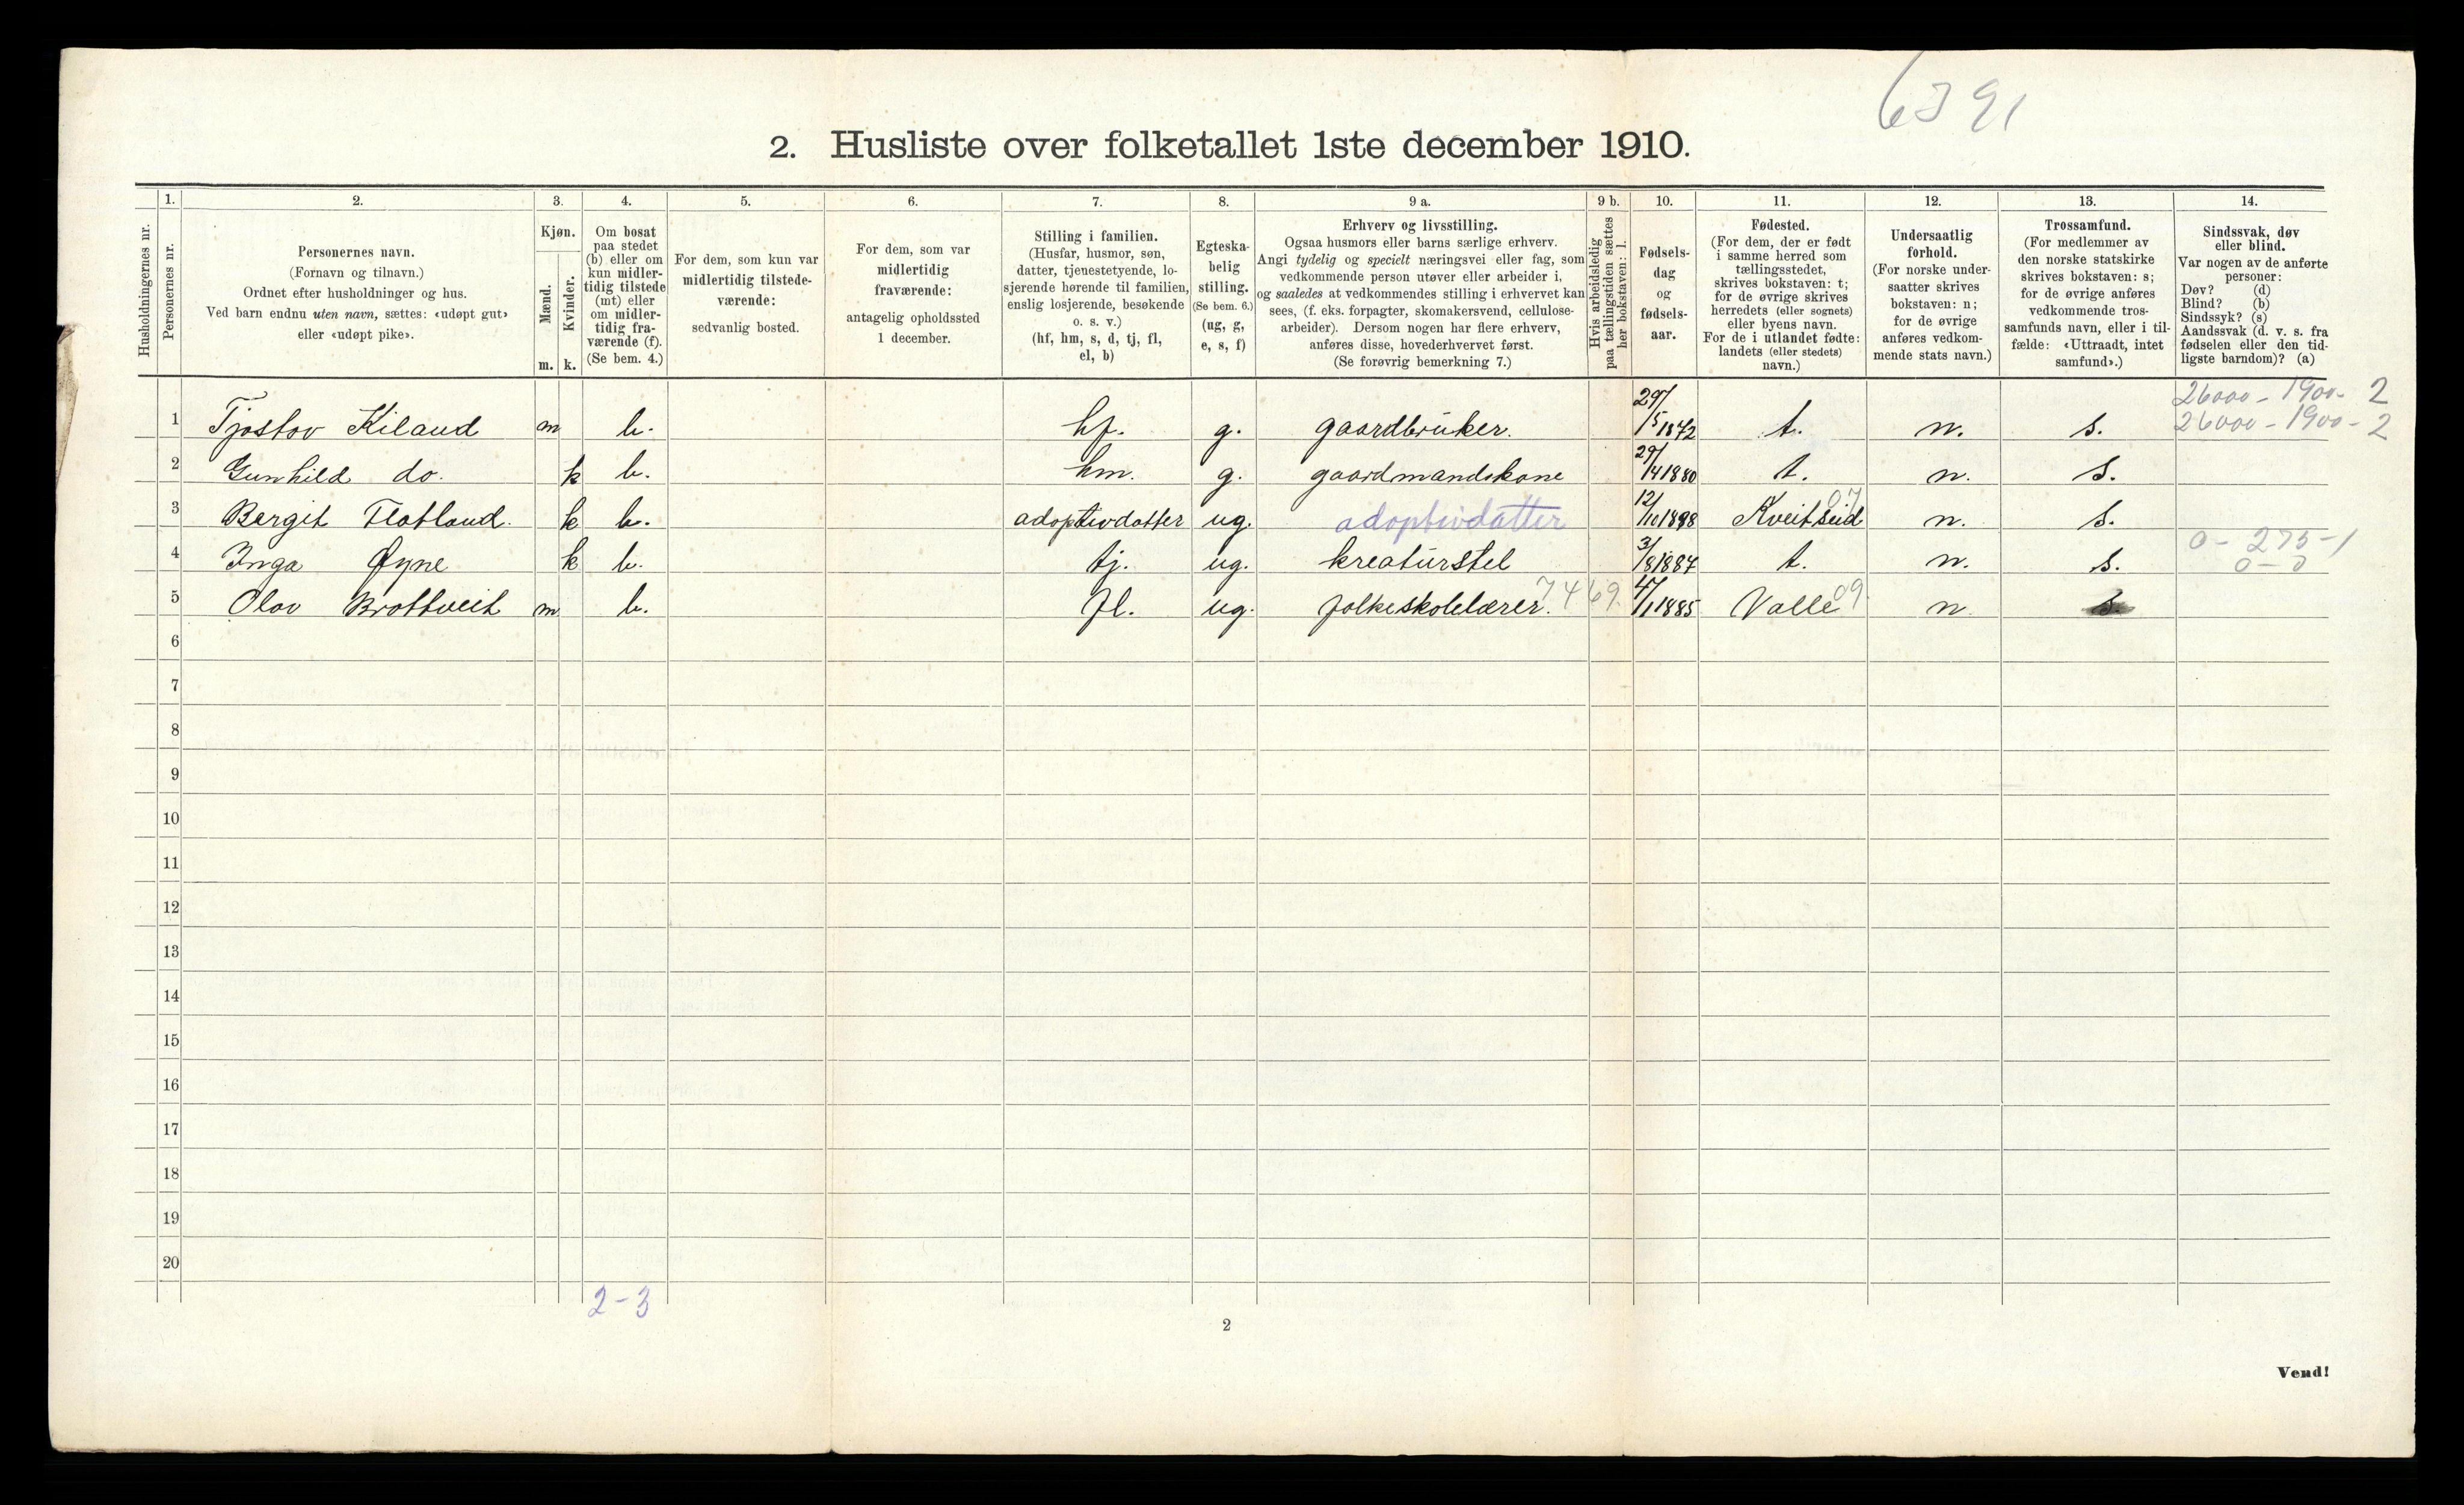 6391
2. Husliste over folketallet 1ste december 1910.
Husholdningernes nr.
1.
Personernes nr.
2.
Personernes navn.
(Fornavn og tilnavn.)
Ordnet efter husholdninger og hus.
Ved barn endnu uten navn, sættes: «udøpt gut»
eller «udøpt pike».
3.
Kjøn.
Mænd.
Kvinder.
m. k.
4.
Om bosat
paa stedet
(b) eller om
kun midler-
tidig tilstede
(mt) eller
om midler-
tidig fra-
værende (f).
(Se bem. 4.)
5.
For dem, som kun var
midlertidig tilstede-
værende:
sedvanlig bosted.
6.
For dem, som var
midlertidig
fraværende:
antagelig opholdssted
1 december.
7.
Stilling i familien.
(Husfar, husmor, søn,
datter, tjenestetyende, lo-
sjerende hørende til familien,
enslig losjerende, besøkende
o. s. v.)
(hf, hm, s, d, tj, fl,
el, b)
8.
Egteska-
belig
stilling.
(Se bem. 6.)
(ug, g,
e, s, f)
9 a.
Erhverv og livsstilling.
Ogsaa husmors eller barns særlige erhverv.
Angi tydelig og specielt næringsvei eller fag, som
vedkommende person utøver eller arbeider i,
og saaledes at vedkommendes stilling i erhvervet kan
sees, (f. eks. forpagter, skomakersvend, cellulose-
arbeider). Dersom nogen har flere erhverv,
anføres disse, hovederhvervet først.
(Se forøvrig bemerkning 7.)
9 b.
Hvis arbeidsledig
paa tællingstiden sættes
her bokstaven: l.
10.
Fødsels-
dag
og
fødsels-
aar.
11.
Fødested.
(For dem, der er født
i samme herred som
tællingsstedet,
skrives bokstaven: t;
for de øvrige skrives
herredets (eller sognets)
eller byens navn.
For de i utlandet fødte:
landets (eller stedets)
navn.)
12.
Undersaatlig
forhold.
(For norske under-
saatter skrives
bokstaven: n;
for de øvrige
anføres vedkom-
mende stats navn.)
13.
Trossamfund.
(For medlemmer av
den norske statskirke
skrives bokstaven: s;
for de øvrige anføres
vedkommende tros-
samfunds navn, eller i til-
fælde: «Uttraadt, intet
samfund».)
14.
Sindssvak, døv
eller blind.
Var nogen av de anførte
personer:
Døv? (d)
Blind? (b)
Sindssyk? (s)
Aandssvak (d. v. s. fra
fødselen eller den tid-
ligste barndom)? (a)
26000 - 1900 - 2
1 Tjostov Kiland m b. hf. g. gaardbruker. 29/5 1872 t. n. s. 26000 - 1900 - 2
2 Gunhild do. k b. hm. g. gaardmandskone 1880 t. n. s.
3 Bergit Flatland. k b. adoptivdatter ug. adoptivdatter 12/10 1898 Kveitseid 07 n. s.
4 Inga Øyne k b. tj. ug. kreaturstel 3/8 1887 t. n. s. 0 - 275 - 1
0 - 0
5 Olav Brottveit m b. fl. ug. folkeskolelærer. 7469. 1885 Valle 09. n. s.
6
7
8
9
10
11
12
13
14
15
16
17
18
19
20
2-3
2
Vend!